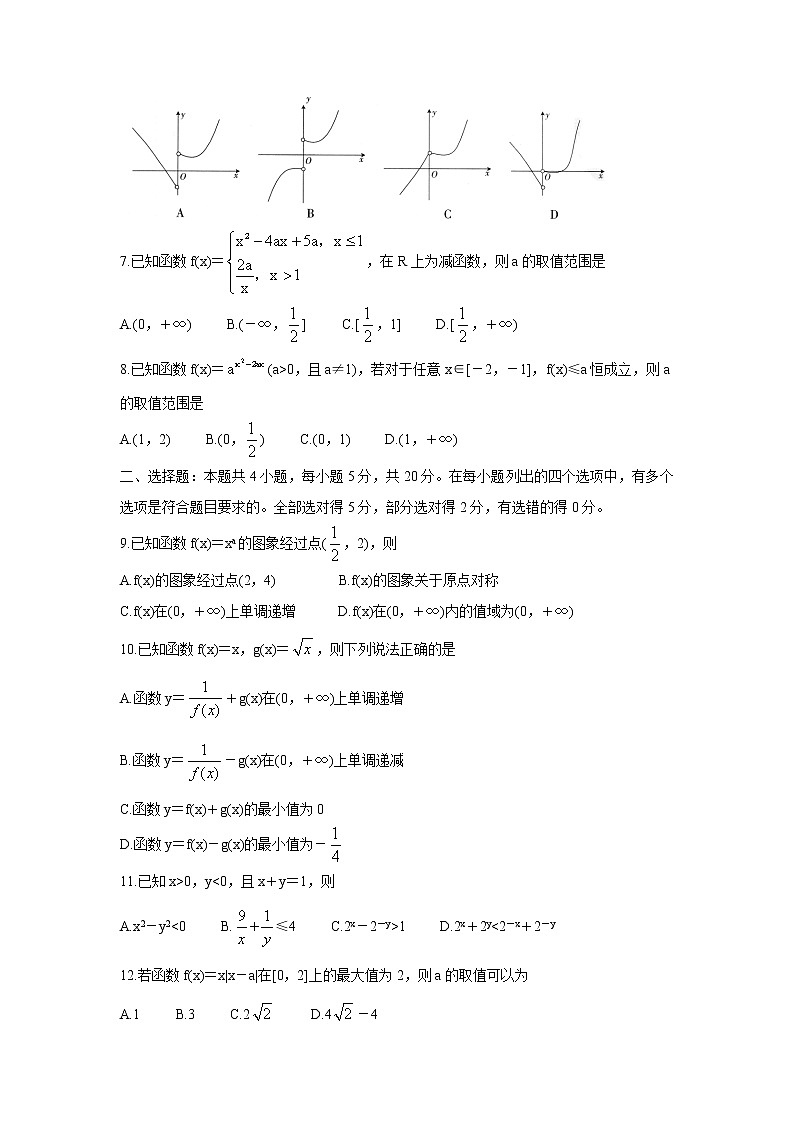 y y y y
O x O x O x O x
A B C D
7.已知函数 f(x)＝{x²－4ax＋5a，x≤1
2a/x，x＞1 ，在 R 上为减函数，则 a 的取值范围是
A.(0，＋∞) B.(－∞，1/2] C.[1/2，1] D.[1/2，＋∞)
8.已知函数 f(x)＝a^(x²－2ax)(a>0，且 a≠1)，若对于任意 x∈[－2，－1]，f(x)≤a 恒成立，则 a
的取值范围是
A.(1，2) B.(0，1/2) C.(0，1) D.(1，＋∞)
二、选择题：本题共 4 小题，每小题 5 分，共 20 分。在每小题列出的四个选项中，有多个
选项是符合题目要求的。全部选对得 5 分，部分选对得 2 分，有选错的得 0 分。
9.已知函数 f(x)＝xᵃ 的图象经过点(1/2，2)，则
A.f(x)的图象经过点(2，4) B.f(x)的图象关于原点对称
C.f(x)在(0，＋∞)上单调递增 D.f(x)在(0，＋∞)内的值域为(0，＋∞)
10.已知函数 f(x)＝x，g(x)＝√x，则下列说法正确的是
A.函数 y＝1/f(x)＋g(x)在(0，＋∞)上单调递增
B.函数 y＝1/f(x)－g(x)在(0，＋∞)上单调递减
C.函数 y＝f(x)＋g(x)的最小值为 0
D.函数 y＝f(x)－g(x)的最小值为－1/4
11.已知 x>0，y<0，且 x＋y＝1，则
A.x²－y²<0 B.9/x＋1/y≤4 C.2ˣ－2⁻ʸ>1 D.2ˣ＋2ʸ<2⁻ˣ＋2⁻ʸ
12.若函数 f(x)＝x|x－a|在[0，2]上的最大值为 2，则 a 的取值可以为
A.1 B.3 C.2√2 D.4√2－4